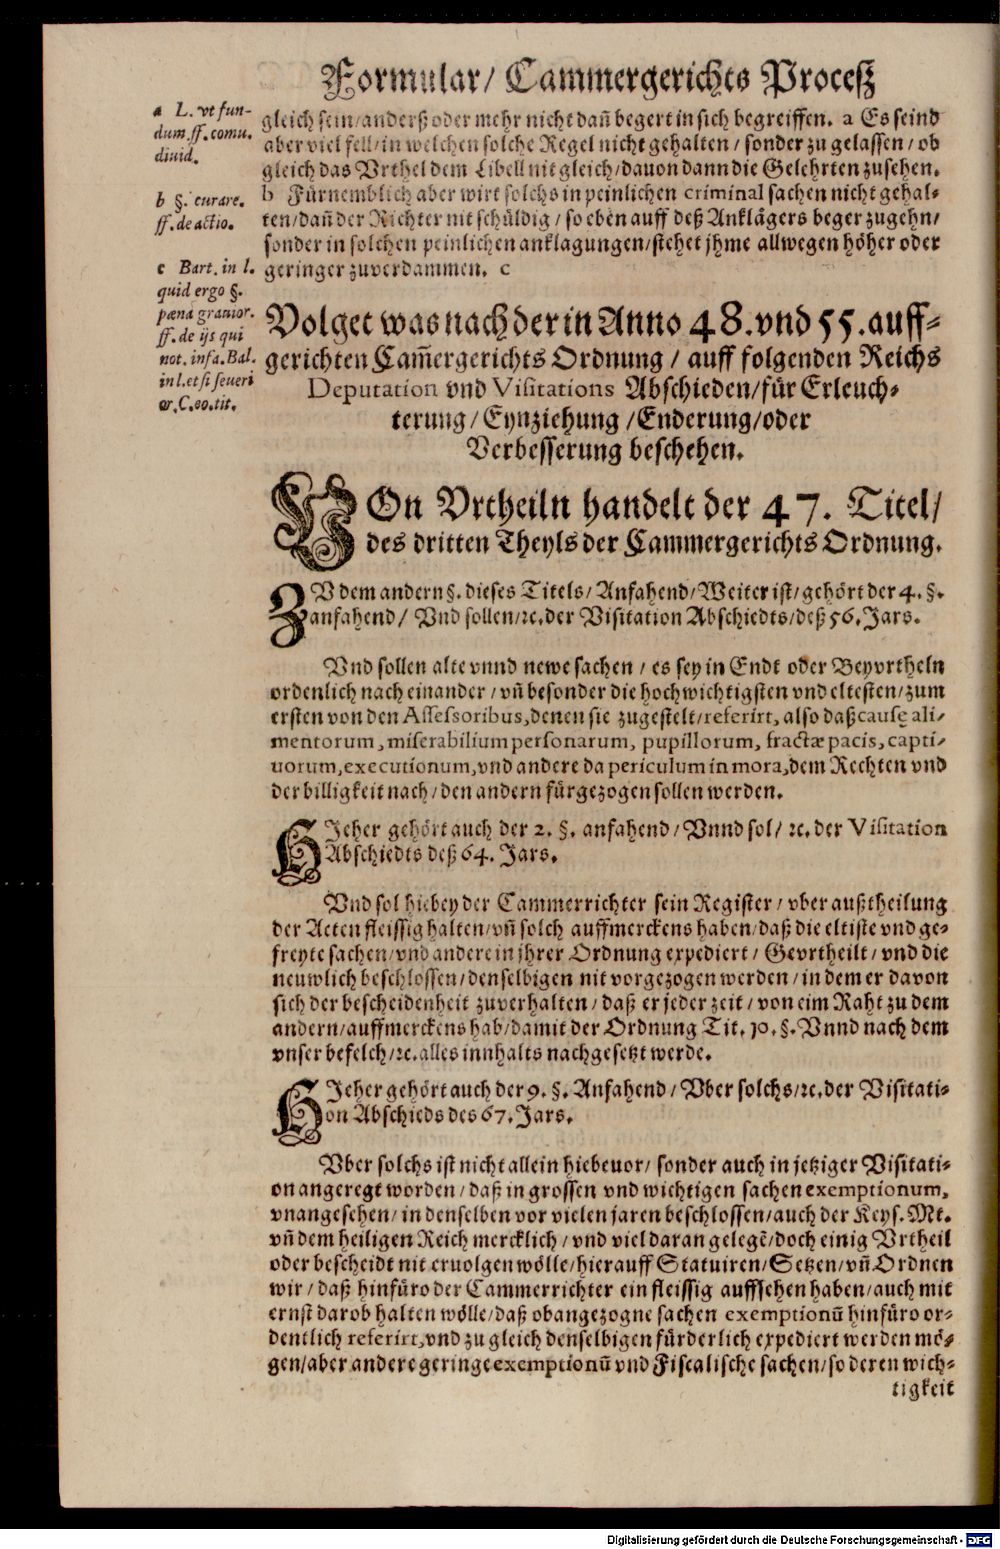 Formular/ Cammergerichts Proceß
a L. vt fun-
dum ff. comu.
diuid.
b §. curare.
ff. de actio.
c Bart. in l.
quid ergo §.
pœna grauior.
ff. de ijs qui
not. infa. Bal.
in l. et si seueri
or. C. eo. tit.
gleich sein/anderß oder mehr nicht dañ begert in sich begreiffen. a Es seind
aber viel fell/in welchen solche Regel nicht gehalten/ sonder zu gelassen/ ob
gleich das Vrthel dem Libell nit gleich/dauon dann die Gelehrten zusehen.
b Fürnemblich aber wirt solchs in peinlichen criminal sachen nicht gehal-
ten/dañ der Richter nit schüldig/ so eben auff deß Anklägers beger zugehn/
sonder in solchen peinlichen anklagungen/stehet jhme allwegen höher oder
geringer zuverdammen. c
Volget was nach der in Anno 48. vnd 55. auff-
gerichten Cam̃ergerichts Ordnung / auff folgenden Reichs
Deputation vnd Visitations Abschieden/für Erleuch-
terung/Eynziehung/Enderung/oder
Verbesserung beschehen.
VOn Vrtheiln handelt der 47. Titel/
des dritten Theyls der Cammergerichts Ordnung.
ZV dem andern §. dieses Titels/ Anfahend/Weiter ist/gehört der 4. §.
anfahend/ Vnd sollen/ꝛc. der Visitation Abschiedts/deß 56. Jars.
Vnd sollen alte vnnd newe sachen / es sey in Endt oder Beyvrtheln
ordenlich nach einander / vñ besonder die hochwichtigsten vnd eltesten/zum
ersten von den Assessoribus, denen sie zugestelt/referirt, also daß causę ali-
mentorum, miserabilium personarum, pupillorum, fractæ pacis, capti-
uorum, executionum, vnd andere da periculum in mora, dem Rechten vnd
der billigkeit nach/ den andern fürgezogen sollen werden.
HJeher gehört auch der 2. §. anfahend/Vnnd sol/ ꝛc. der Visitation
Abschiedts deß 64. Jars.
Vnd sol hiebey der Cammerrichter sein Register/ vber außtheilung
der Acten fleissig halten/vñ solch auffmerckens haben/daß die eltiste vnd ge-
freyte sachen/vnd andere in jhrer Ordnung expediert/ Gevrtheilt/ vnd die
neuwlich beschlossen/denselbigen nit vorgezogen werden/ in dem er davon
sich der bescheidenheit zuverhalten/ daß er jeder zeit/ von eim Raht zu dem
andern/auffmerckens hab/damit der Ordnung Tit. 10. §. Vnnd nach dem
vnser befelch/ꝛc. alles innhalts nachgesetzt werde.
HJeher gehört auch der 9. §. Anfahend/ Vber solchs/ꝛc. der Visitati-
on Abschieds des 67. Jars.
Vber solchs ist nicht allein hiebeuor/ sonder auch in jetziger Visitati-
on angeregt worden/ daß in grossen vnd wichtigen sachen exemptionum,
vnangesehen/ in denselben vor vielen jaren beschlossen/auch der Keys. Mt.
vñ dem heiligen Reich mercklich/ vnd viel daran gelegẽ/doch einig Vrtheil
oder bescheidt nit eruolgen wölle/hierauff Statuiren/Setzen/vñ Ordnen
wir/ daß hinfüro der Cammerrichter ein fleissig auffsehen haben/auch mit
ernst darob halten wölle/daß obangezogne sachen exemptionũ hinfüro or-
dentlich referirt, vnd zu gleich denselbigen fürderlich expediert werden mö-
gen/aber andere geringe exemptionũ vnd Fiscalische sachen/so deren wich-
tigkeit
Digitalisierung gefördert durch die Deutsche Forschungsgemeinschaft - DFG